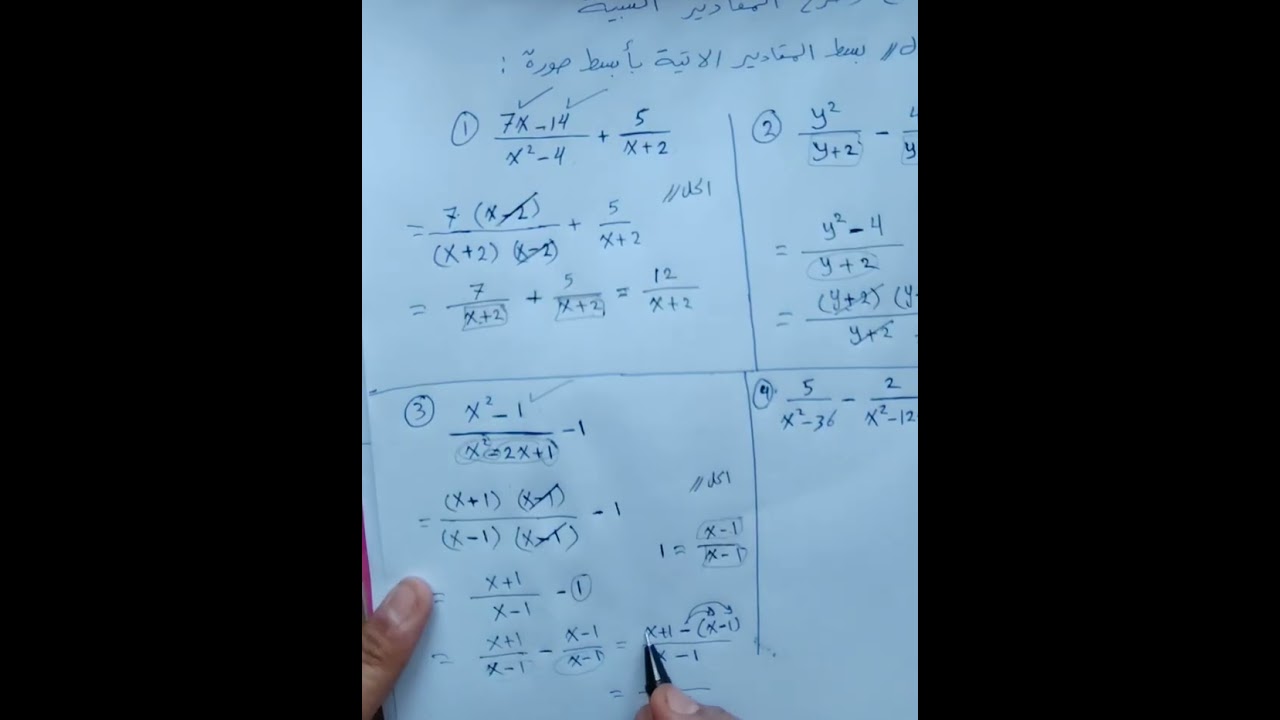 المقادير النسبية
بسط المقادير الاتية بأبسط صورة :
① (7x-14)/(x²-4) + 5/(x+2)
الحل //
= 7(x-2)/((x+2)(x-2)) + 5/(x+2)
= 7/(x+2) + 5/(x+2) = 12/(x+2)
② y²/(y+2) -
= (y²-4)/(y+2)
= (y+2)(y-/(y+2)
③ (x²-1)/(x²-2x+1) - 1
الحل //
= (x+1)(x-1)/((x-1)(x-1)) - 1
1 = (x-1)/(x-1)
= (x+1)/(x-1) - 1
= (x+1)/(x-1) - (x-1)/(x-1) = (x+1-(x-1))/(x-1)
=
④ 5/(x²-36) - 2/(x²-12